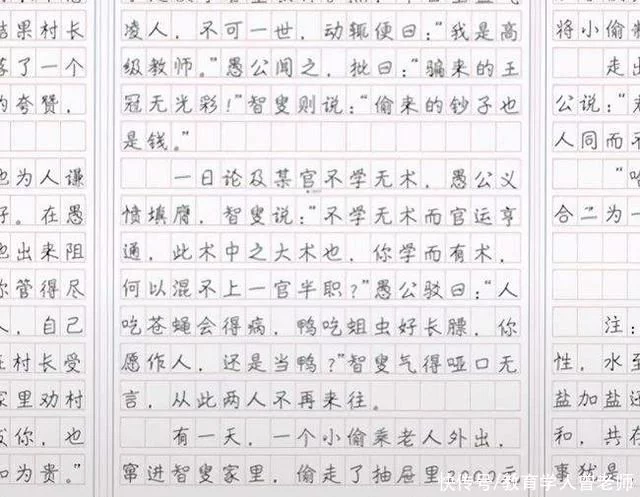 结果村长
落了一个
的夸赞，
他为人谦
好。在愚
他出来阻
你管得尽
人，自己
在村长受
家里劝村
你，也
和为贵。”
凌人，不可一世，动辄便曰：“我是高
级教师。”愚公闻之，批曰：“骗来的王
冠无光彩！”智叟则说：“偷来的钞子也
是钱。”
一日论及某官不学无术，愚公义
愤填膺，智叟说：“不学无术而官运亨
通，此术中之大术也，你学而有术，
何以混不上一官半职？”愚公驳曰：“人
吃苍蝇会得病，鸭吃蛆虫好长膘，你
愿作人，还是当鸭？”智叟气得哑口无
言，从此两人不再来往。
有一天，一个小偷乘老人外出，
窜进智叟家里，偷走了抽屉里2000元
将小偷
走出
公说：“
人同而不
“哈
合二为一
注：
性，水至
盐加盐还
和，共存
事犹是
快传号/教育学人曾老师